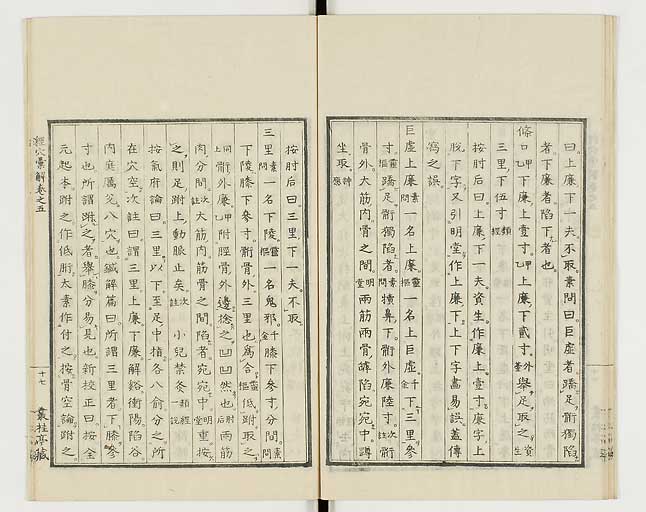 曰上廉下一夫不取素問曰巨虚者蹻足䯒獨陷
者下廉者陷下者也
條口甲乙下廉上壹寸甲乙上廉下貳寸外臺舉足取之資生
三里下伍寸類經
按肘后曰上廉下一夫資生作廉上壹寸廉字上
脱下字又引明堂作上廉下上下字畵易誤蓋傳
寫之誤
巨虚上廉素問一名上廉靈樞一名上巨虚千金下三里參
寸靈樞蹻足䯒獨陷者素問犢鼻下䯒外廉陸寸次註䯒
骨外大筋肉骨之間明堂兩筋兩骨罅陷宛宛中蹲
坐取
按肘后曰三里下一夫不取
三里素問一名下陵靈樞一名鬼邪千金膝下參寸分間素問
下陵膝下參寸䯒骨外三里也爲合靈樞低跗取之
䯒外廉甲乙附脛骨外邊捻之凹凹然也肘后兩筋
肉分間次註大筋肉筋骨之間陷者宛宛中明堂重按
之則足跗上動脈止矣次註小兒禁灸類經一説
按氣府論曰三里以下至足中指各八俞分之所
在穴空次註曰謂三里上廉下廉解谿衝陽陷谷
内庭厲兌八穴也鍼解篇曰所謂三里者下膝參
寸也所謂跗之者舉膝分易見也新校正曰按全
元起本跗之作低胻太素作付之按骨空論跗之
經穴彙解卷之五
十七
叢桂亭藏